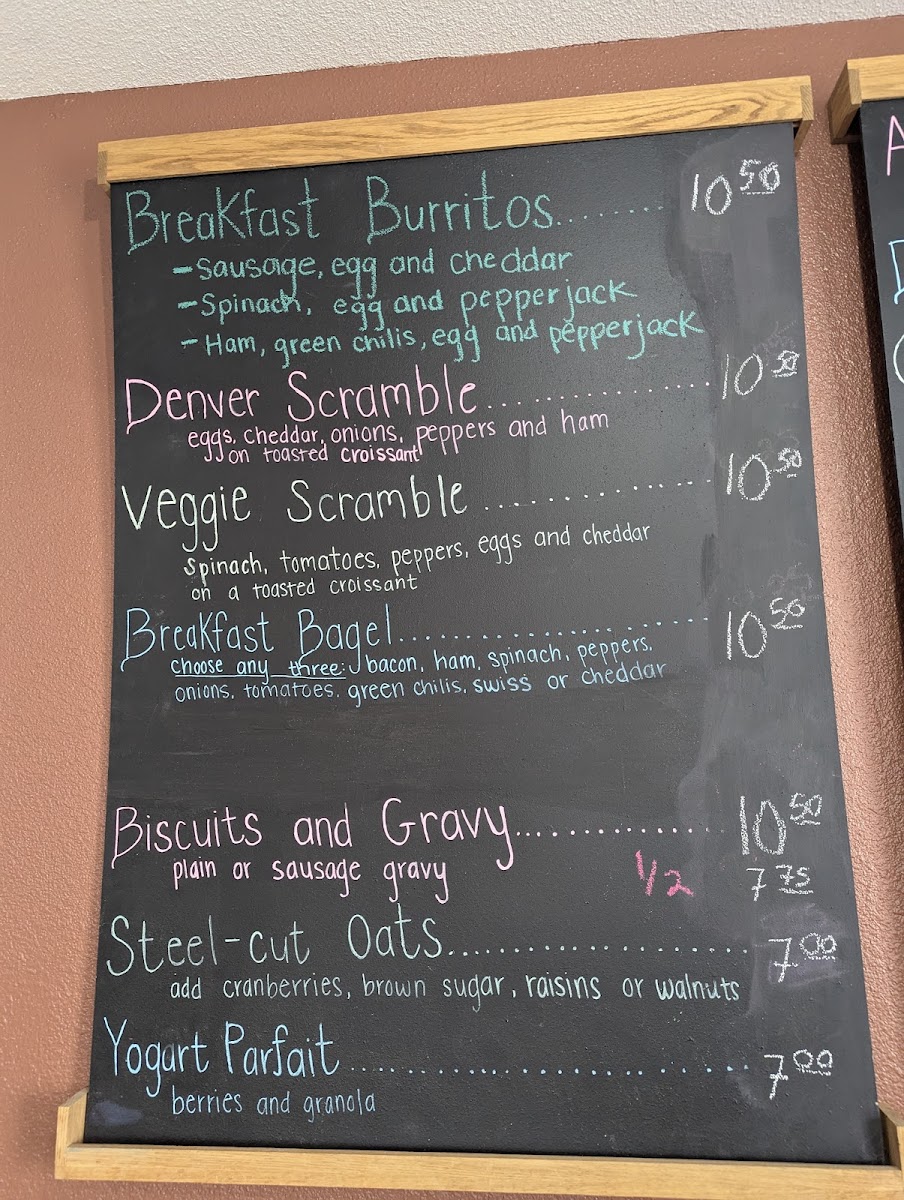 Breakfast Burritos........ 10 50
-Sausage, egg and cheddar
-Spinach, egg and pepperjack
-Ham, green chilis, egg and pepperjack
Denver Scramble........................ 10 50
eggs, cheddar, onions, peppers and ham
on toasted croissant
Veggie Scramble........................ 10 50
Spinach, tomatoes, peppers, eggs and cheddar
on a toasted croissant
Breakfast Bagel........................ 10 50
choose any three: bacon, ham, spinach, peppers,
onions, tomatoes, green chilis, swiss or cheddar
Biscuits and Gravy................ 10 50
plain or sausage gravy 1/2 7 75
Steel-cut Oats........................ 7 00
add cranberries, brown sugar, raisins or walnuts
Yogurt Parfait........................ 7 00
berries and granola
A
D